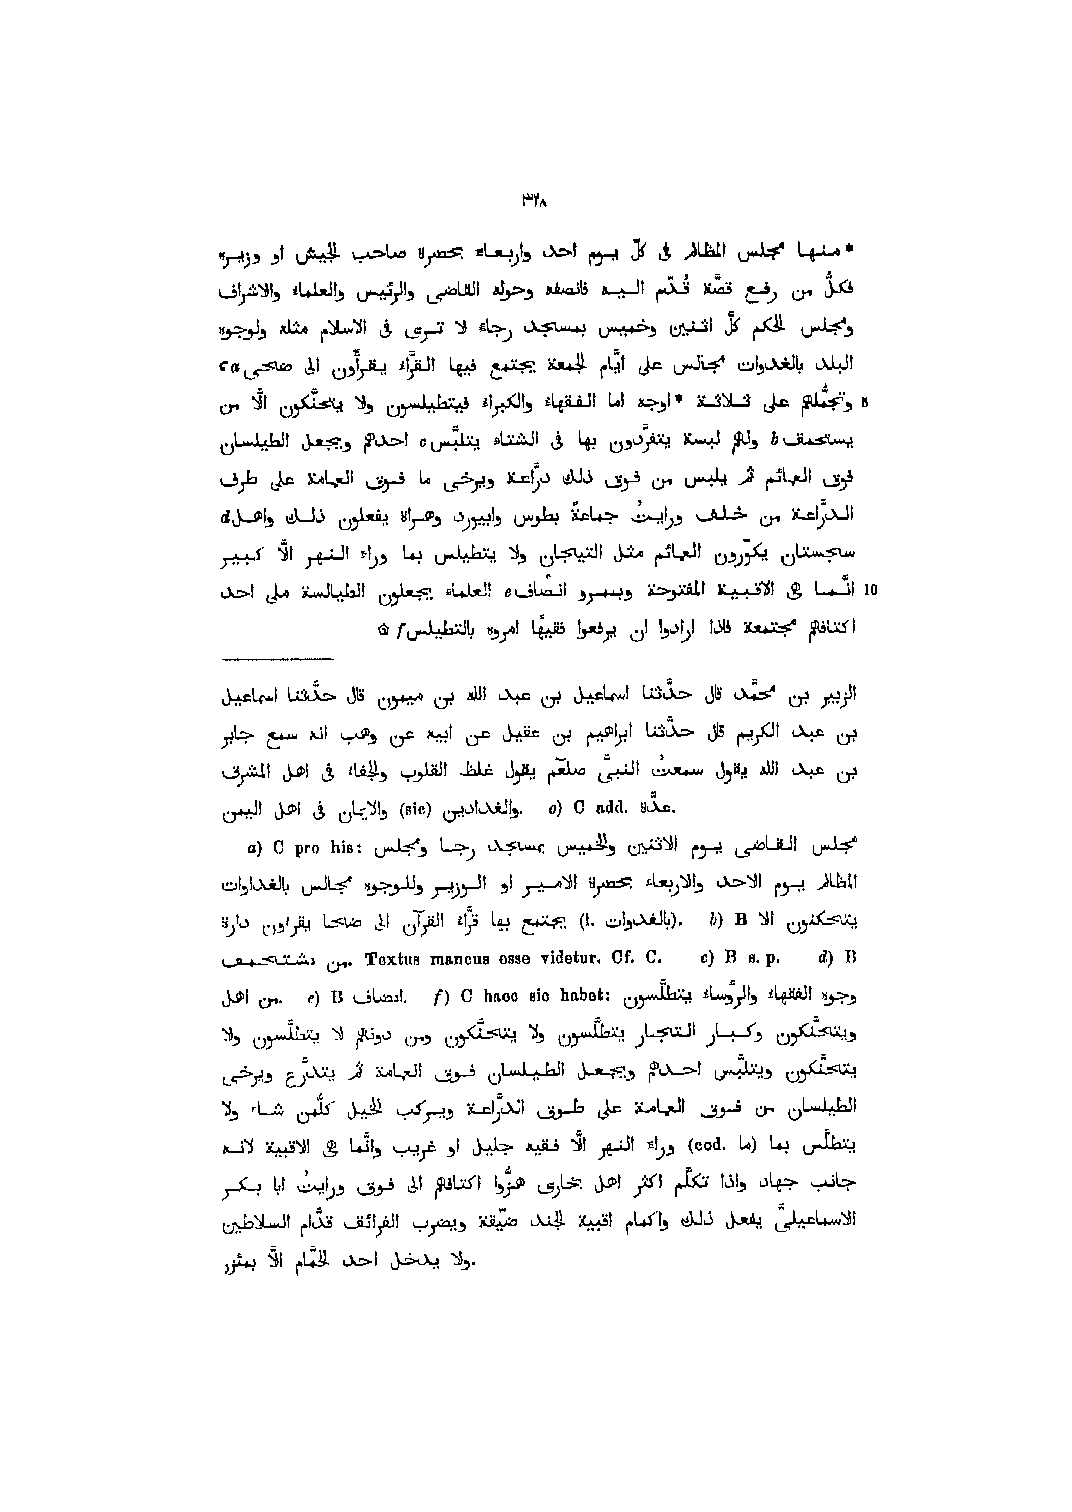 ٣٢٨
*منها مجلس المظالم فى كلّ يوم احد واربعاء بحضرة صاحب الجيش او وزيره
فكلُّ من رفع قصّة قُدّم اليه فانصفه وحوله القاضى والرئيس والعلماء والاشراف
ومجلس الحكم كلَّ اثنين وخميس بمسجد رجاء لا ترى فى الاسلام مثله ولوجوه
البلد بالغدوات مجالس على ايّام الجمعة يجتمع فيها القرَّاء يقرأَون الى ضحى a
5 وتجمُّلهم على ثلاثة *اوجه اما الفقهاء والكبراء فيتطيلسون ولا يتحنّكون الَّا من
يستحمف b ولهم لبسة يتفرَّدون بها فى الشتاء يتلبَّس c احدهم ويجعل الطيلسان
فوق العمائم ثم يلبس من فوق ذلك درَّاعة ويرخى ما فوق العمامة على طرف
الدرَّاعة من خلف ورايتُ جماعةً بطوس وابيورد وهراة يفعلون ذلك واهل d
سجستان يكوّرون العمائم مثل التيجان ولا يتطيلس بما وراء النهر الَّا كبير
10 انَّما هى الاقبية المفتوحة وبمرو انصاف e العلماء يجعلون الطيالسة على احد
اكتافهم مجتمعة فاذا ارادوا ان يرفعوا فقيهًا امروه بالتطيلس f ۞
الزبير بن محمَّد قال حدَّثنا اسماعيل بن عبد الله بن ميمون قال حدَّثنا اسماعيل
بن عبد الكريم قال حدَّثنا ابراهيم بن عقيل عن ابيه عن وهب انه سمع جابر
بن عبد الله يقول سمعتُ النبىَّ صلعم يقول غلظ القلوب والجفاء فى اهل المشرق
والغدادين (sic) والايمان فى اهل اليمن. o) C add. عدَّة.
a) C pro his: مجلس القاضى يوم الاثنين والخميس بمسجد رجا ومجلس
المظالم يوم الاحد والاربعاء بحضرة الامير او الوزير وللوجوه مجالس بالغداوات
(l. بالغدوات) يجتمع بها قرَّاء القرآن الى ضحا يقرءون دارة. b) B يتحكنون الا
من دشتجمف. Textus mancus esse videtur. Cf. C. c) B s. p. d) B
من اهل. e) B انصاف. f) C haec sic habet: وجوه الفقهاء والرؤساء يتطلَّسون
ويتحنَّكون وكبار التجار يتطلَّسون ولا يتحنَّكون ومن دونهم لا يتطلَّسون ولا
يتحنَّكون ويتلبَّس احدهم ويجعل الطيلسان فوق العمامة ثم يتدرَّع ويرخى
الطيلسان من فوق العمامة على طوق الدرَّاعة ويركب الخيل كلّمن شاء ولا
يتطلّس بما (cod. ما) وراء النهر الَّا فقيه جليل او غريب وانَّما هى الاقبية لانه
جانب جهاد واذا تكلّم اكثر اهل بخارى هزُّوا اكتافهم الى فوق ورايتُ ابا بكر
الاسماعيلىَّ يفعل ذلك واكمام اقبية الجند ضيّقة ويضرب الفرائق قدَّام السلاطين
ولا يدخل احد الحمَّام الَّا بمئزر.